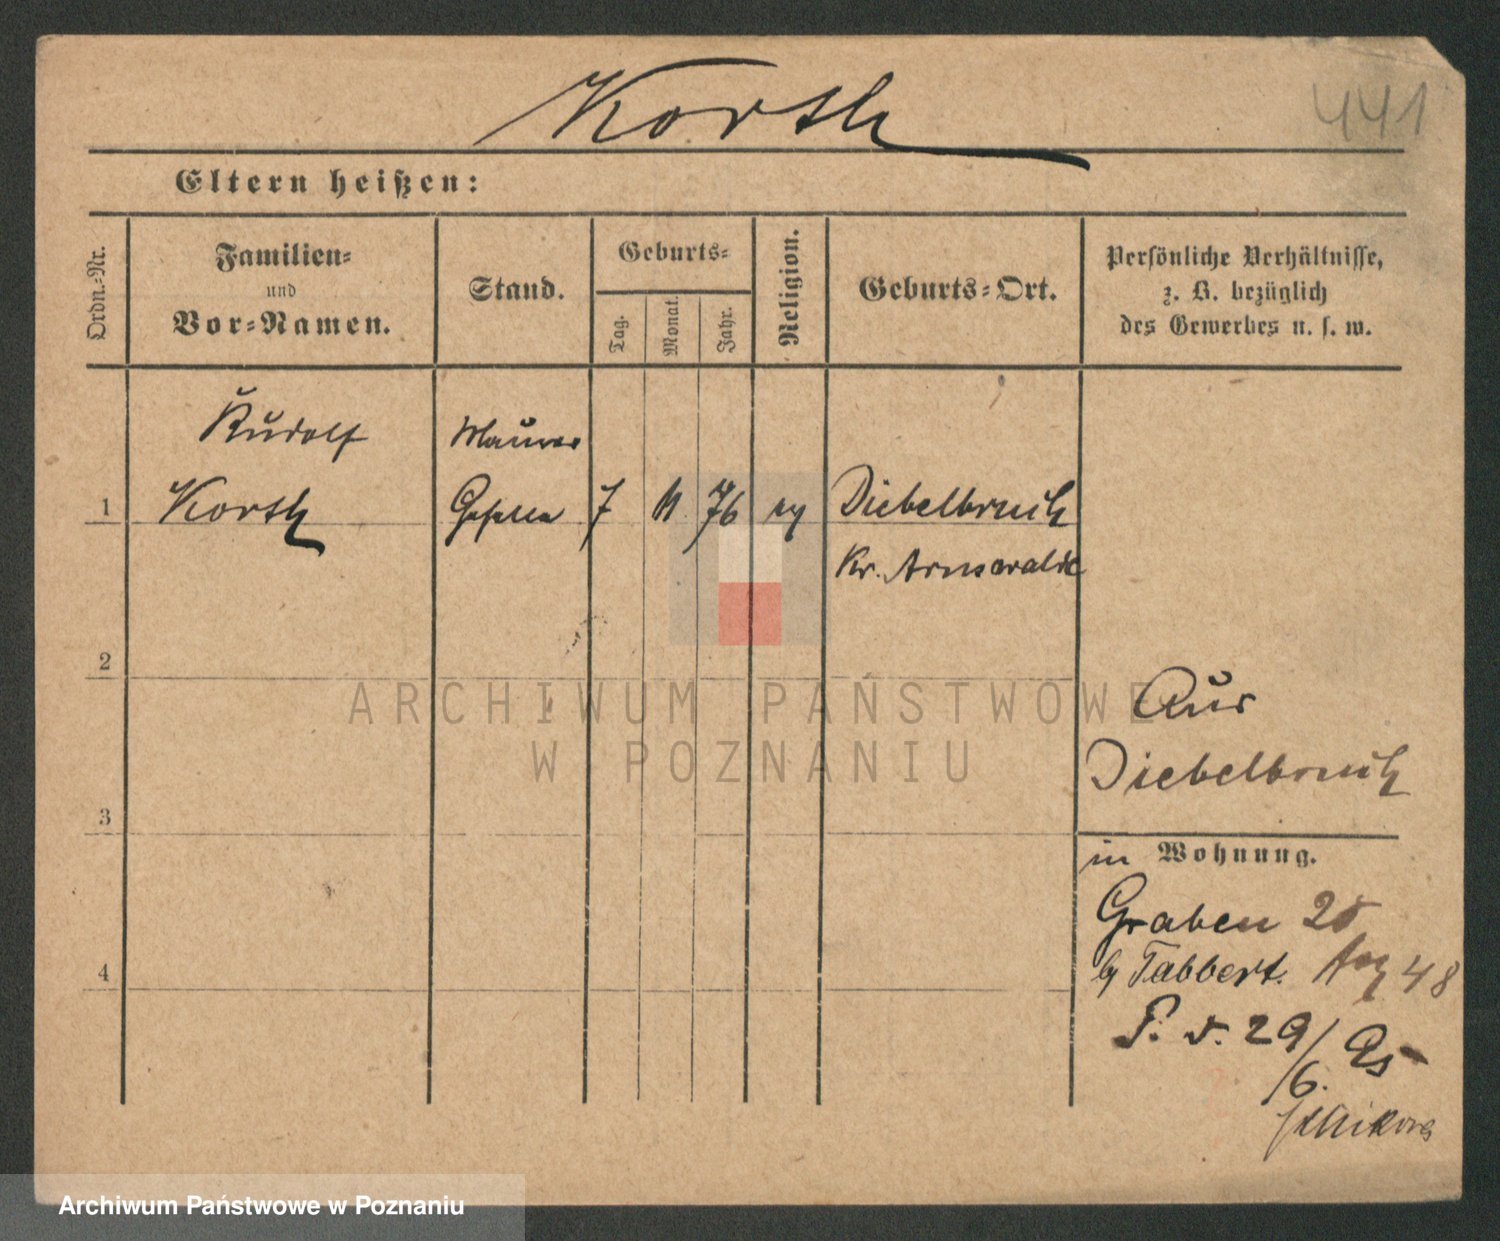 Korth
441
Eltern heißen:
Ordn.-Nr.
Familien-
und
Vor-Namen.
Stand.
Geburts-
Tag.
Monat.
Jahr.
Religion.
Geburts-Ort.
Persönliche Verhältnisse,
z. B. bezüglich
des Gewerbes u. s. w.
Rudolf
Maurer
1
Korth
Geselle
7
11
76
ev
Diebelbruch
Kr. Arnswalde
2
ARCHIWUM PAŃSTWOWE
W POZNANIU
Aus
Diebelbruch
3
in Wohnung.
Graben 25
b/ Tabbert.
48
4
P. v. 29/6. 95
Archiwum Państwowe w Poznaniu